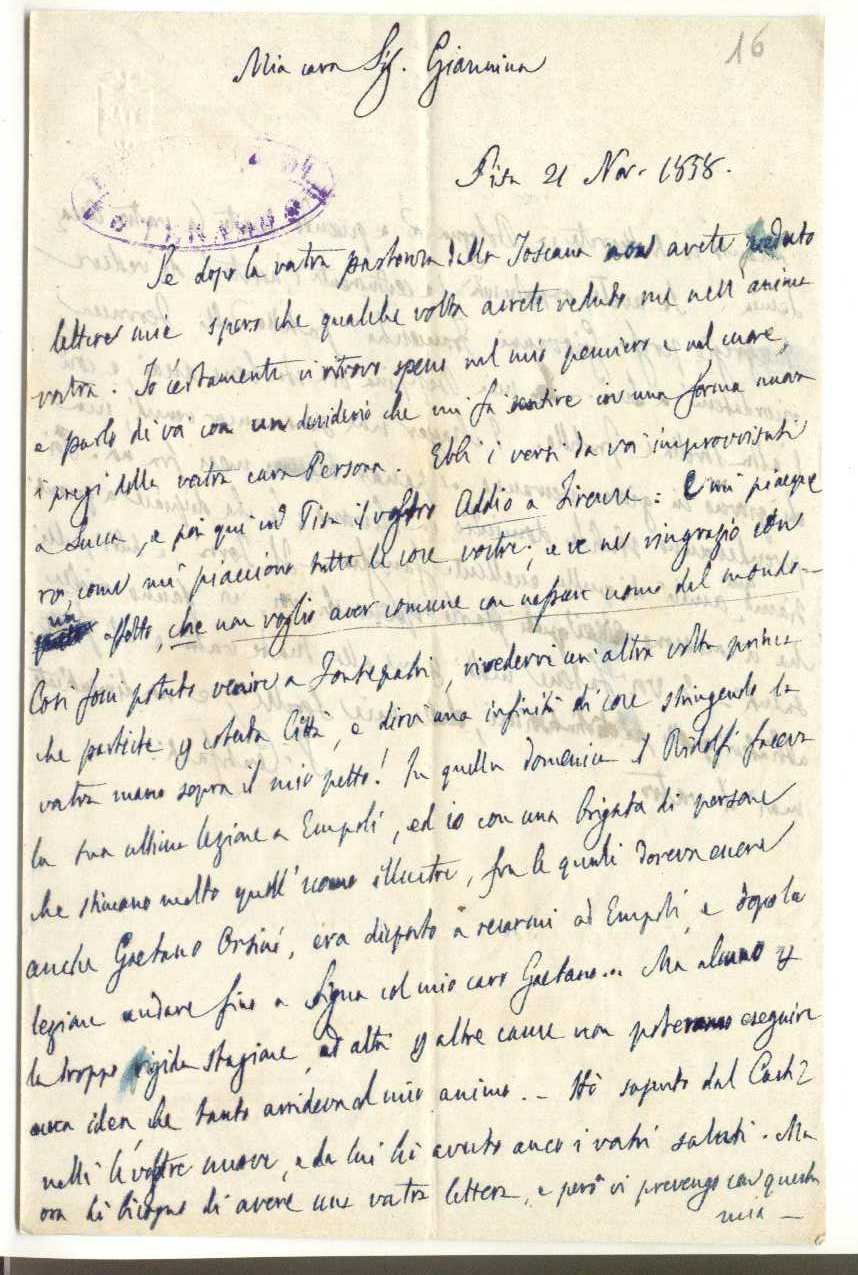 16
Mia cara Sig. Giannina
Pisa 21 Nov. 1858.
Se dopo la vostra partenza dalla Toscana non avete veduto
lettere mie spero che qualche volta avrete veduto me nell'anima
vostra. Io certamente vi ritrovo spesso nel mio pensiero e nel cuore,
e parlo di voi con un desiderio che mi fa sentire in una forma nuova
i pregi della vostra cara Persona. Ebbi i versi da voi improvvisati
a Lucca, e poi qui in Pisa il vostro Addio a Firenze: e mi piacque
ro, come mi piacciono tutte le cose vostre; e ve ne ringrazio con
un affetto, che non voglio aver comune con nessun uomo del mondo—
Così fossi potuto venire a, rivedervi un'altra volta prima
che partiste p cotesta Città, e dirvi una infinità di cose stringendo la
vostra mano sopra il mio petto! In quella domenica il Ridolfi faceva
la sua ultima lezione a Empoli, ed io con una brigata di persone
che stimano molto quell'uomo illustre, fra le quali doveva essere
anche Gaetano Orsini, era disposto a recarmi ad Empoli, e dopo la
lezione andare fino a Signa col mio caro Gaetano... Ma alcuno p
la troppo rigida stagione, ed altri p altre cause non poterono eseguire
una idea che tanto arrideva al mio animo. — Hò saputo dal
le vostre nuove, e da lui hò avuto anco i vostri saluti. Ma
ora hò bisogno di avere una vostra lettera, e però vi prevengo con questa
mia —